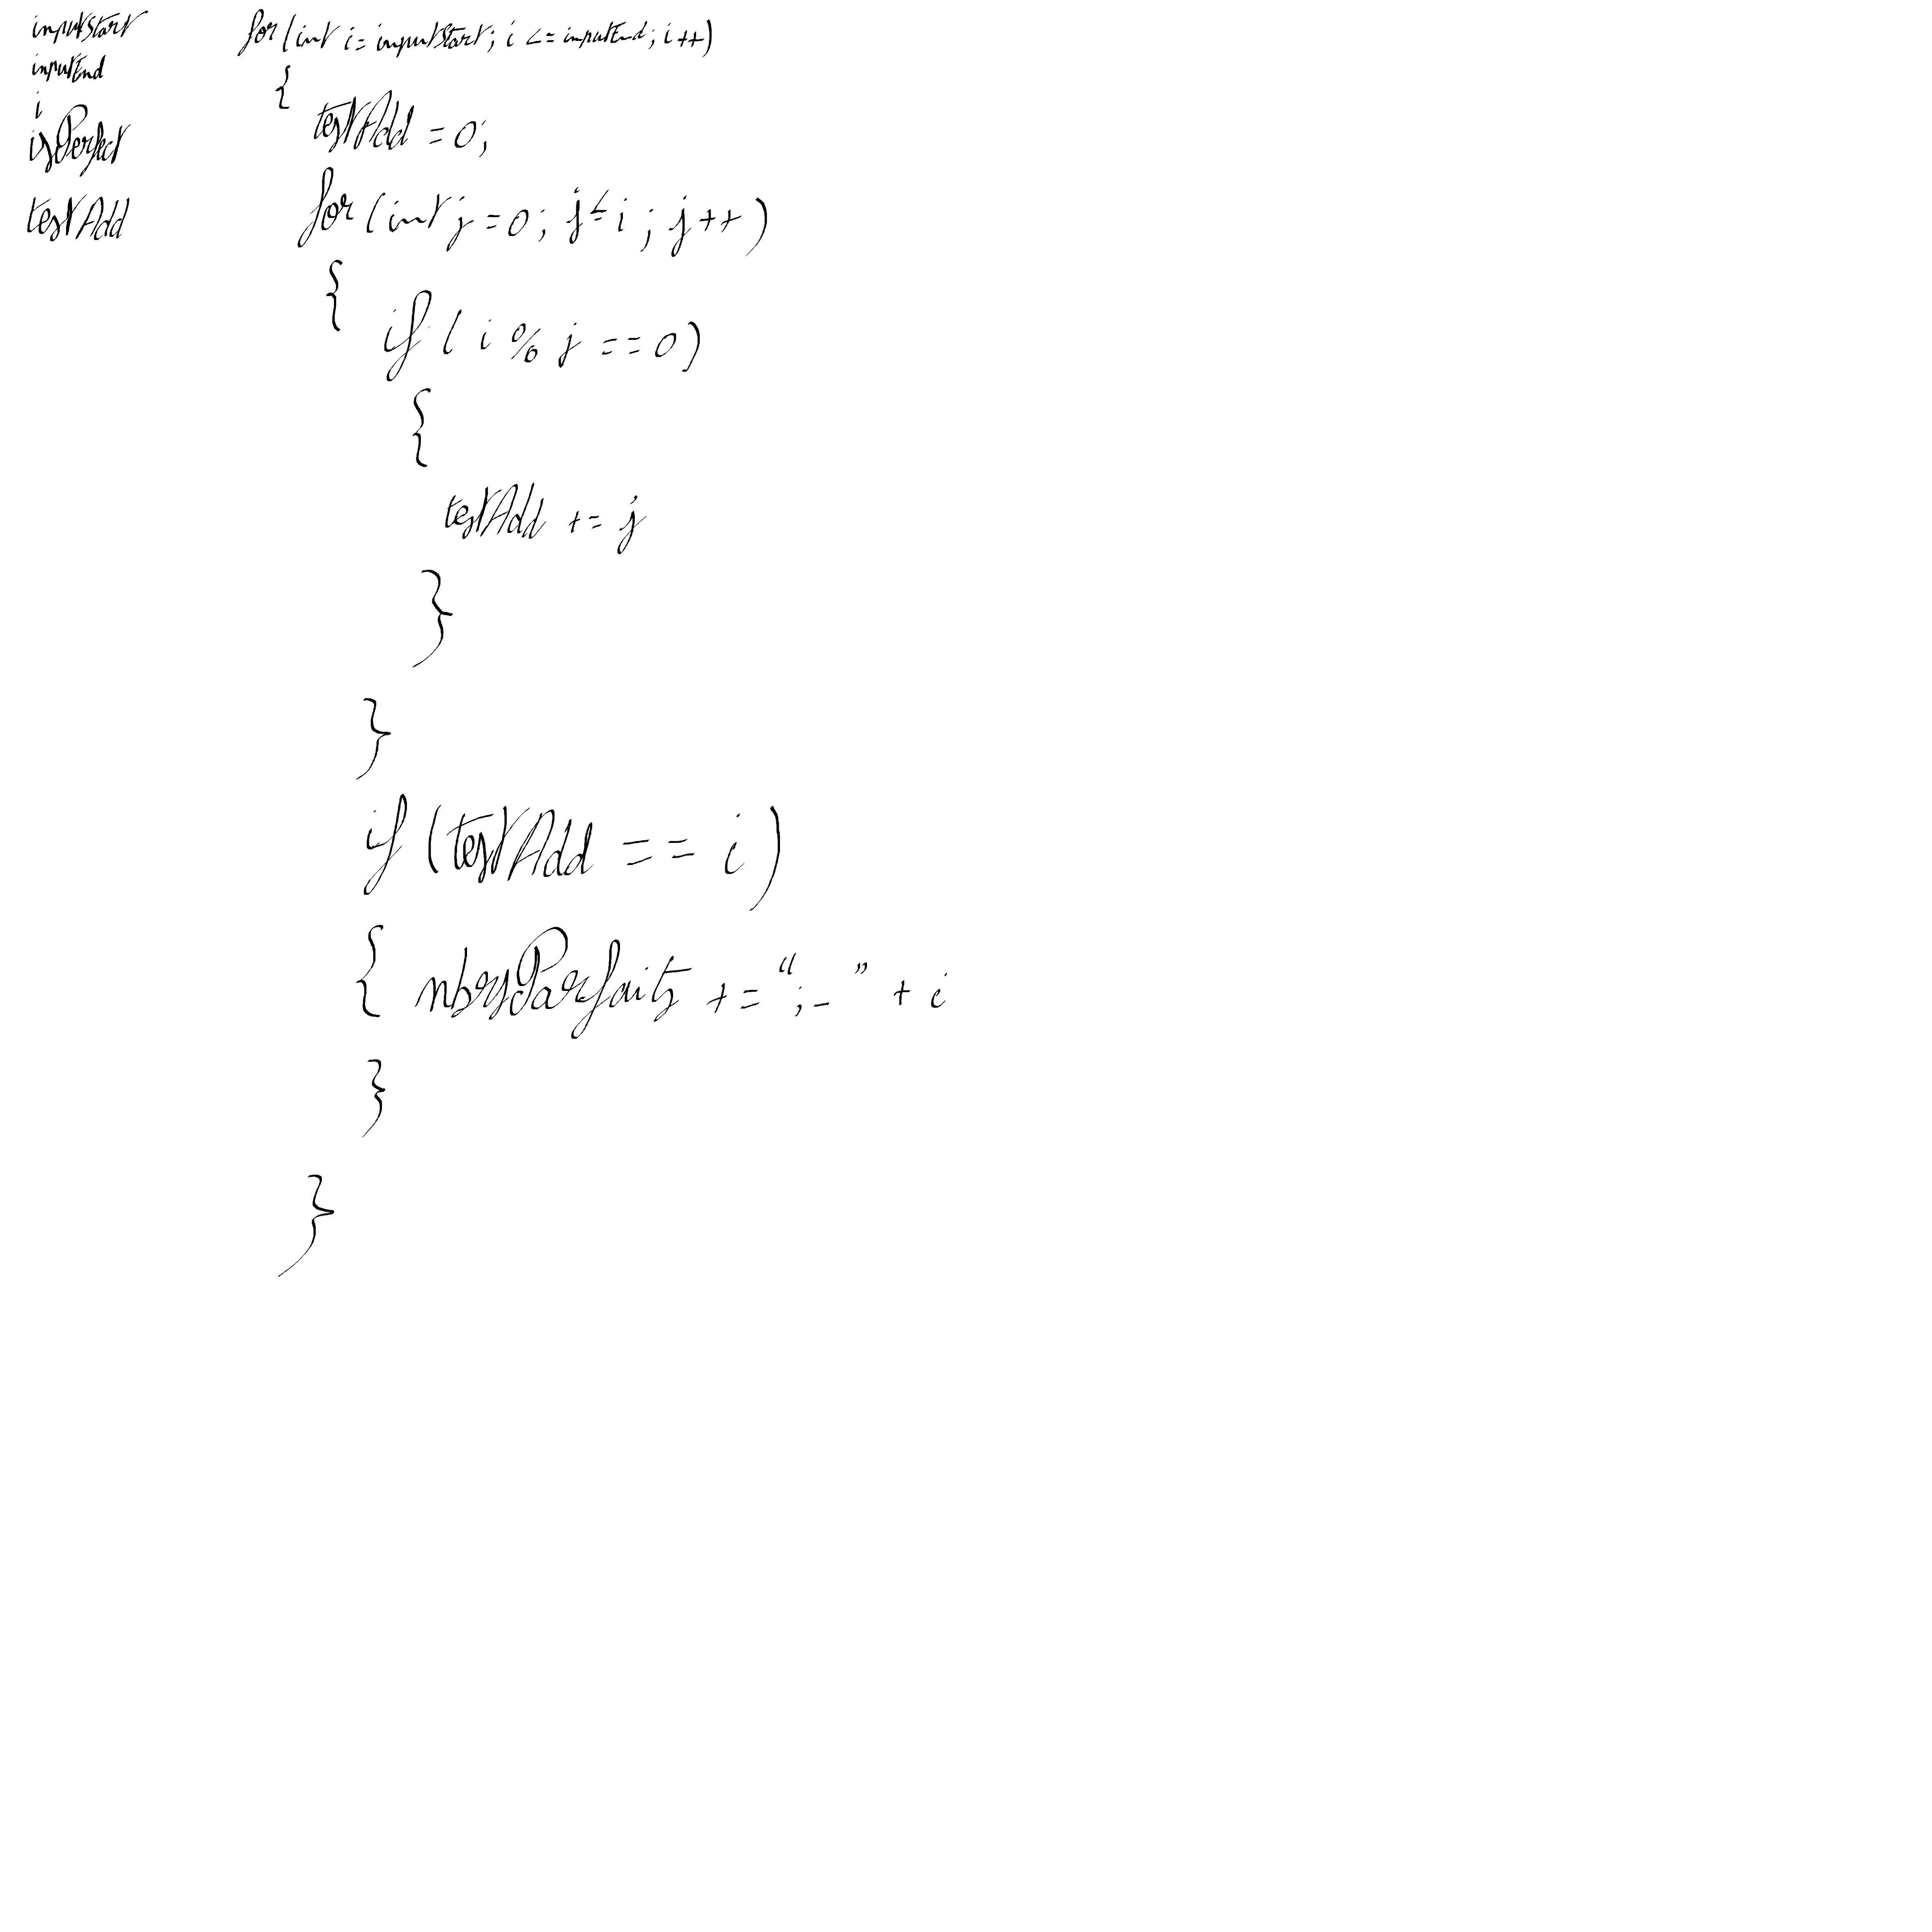 inputStart
inputEnd
i
isPerfect
testAdd
for (int i = inputStart; i <= inputEnd; i++)
{
testAdd = 0;
for (int j = 0; j <= i ; j++)
{
if ( i % j == 0)
{
testAdd += j
}
}
if (testAdd == i)
{ nbrsParfaits += ";_" + i
}
}